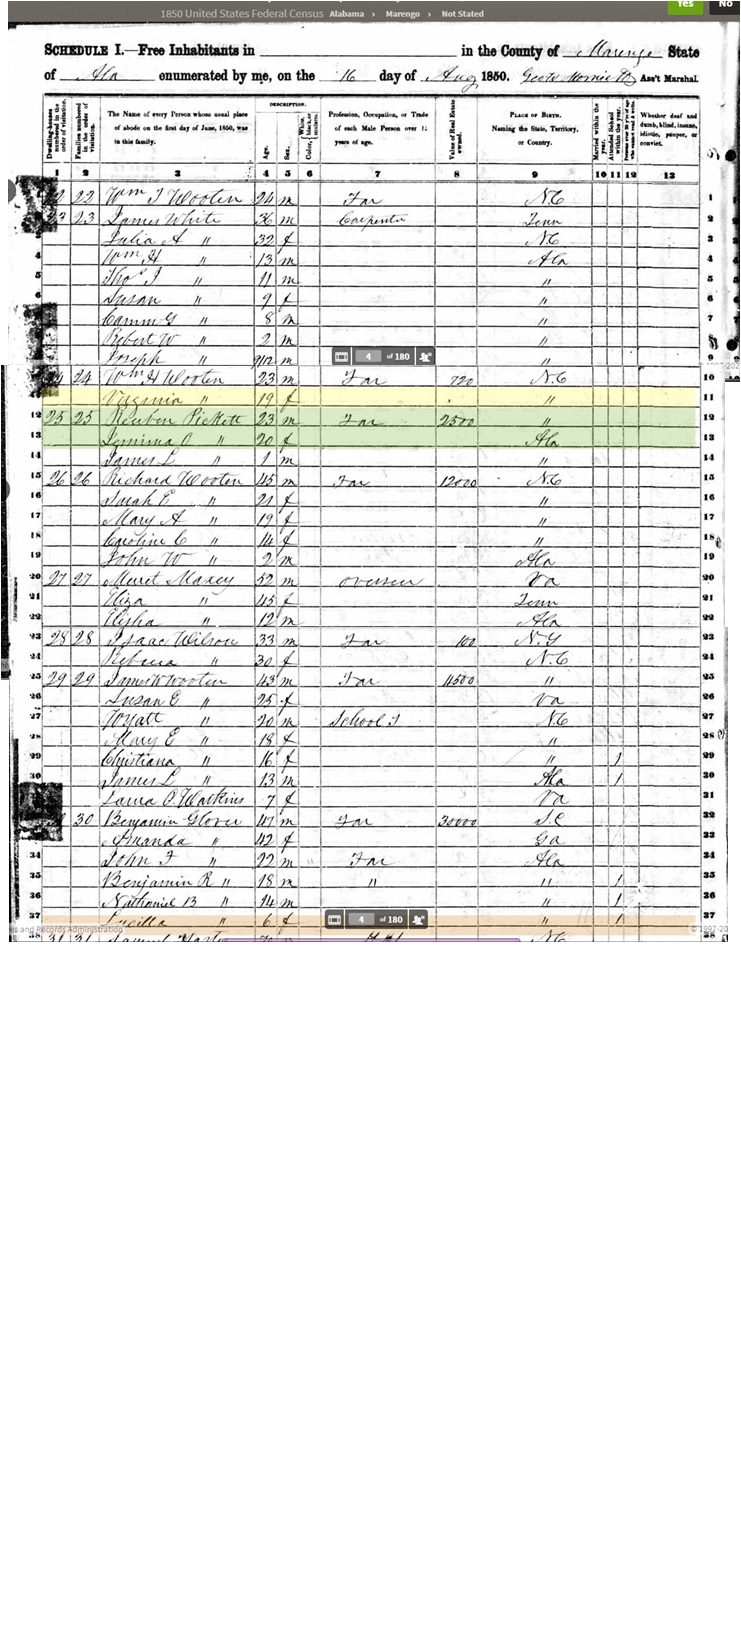 Yes No
1850 United States Federal Census Alabama › Marengo › Not Stated
SCHEDULE I.—Free Inhabitants in in the County of Marengo State
of Ala enumerated by me, on the 16 day of Aug 1850. Ass't Marshal.
Dwelling-houses numbered in the order of visitation.
Families numbered in the order of visitation.
The Name of every Person whose usual place of abode on the first day of June, 1850, was in this family.
DESCRIPTION.
Age.
Sex.
White, black, or mulatto. Color,
Profession, Occupation, or Trade of each Male Person over 15 years of age.
Value of Real Estate owned.
PLACE OF BIRTH. Naming the State, Territory, or Country.
Married within the year.
Attended School within the year.
Whether deaf and dumb, blind, insane, idiotic, pauper, or convict.
1 2 3 4 5 6 7 8 9 10 11 12 13
22 Wm T Wooten 24 m Far N.C 1
23 James White 36 m Carpenter Tenn 2
3 Julia A " 32 f N.C 3
4 Wm H " 13 m Ala 4
5 Thos J " 11 m " 5
6 Susan " 9 f " 6
7 " 8 m " 7
Robert W " 2 m " 8
Joseph " 9/12 m " 9
4 of 180
24 Wm H Wooten 23 m Far 720 N.C 10
11 Virginia " 19 f " 11
12 25 25 Reuben Pickett 23 m Far 2500 " 12
13 Jemima " 20 f Ala 13
14 James L " 1 m " 14
15 26 26 Richard Wooten 45 m Far 12000 N.C 15
16 Sarah E " 21 f " 16
17 Mary A " 19 f " 17
18 Caroline C " 14 f " 18
19 John W " 2 m Ala 19
20 27 27 Maxey 52 m overseer Va 20
21 Eliza " 45 f Tenn 21
22 Elisha " 12 m Ala 22
23 28 28 Isaac Wilson 33 m Far 100 N.Y 23
24 " 30 f N.C 24
25 29 29 James W Wooten 43 m Far 4500 " 25
26 Susan E " 25 f Va 26
27 Wyatt " 20 m School T NC 27
28 Mary E " 18 f " 28
29 Christiana " 16 f " 1 29
30 James L " 13 m Ala 1 30
Laura O. Watkins 7 f Va 31
30 Benjamin Glover 47 m Far 30000 S.C 32
Amanda " 42 f Ga 33
34 John F " 22 m Far Ala 34
35 Benjamin R " 18 m " " 1 35
36 Nathaniel B " 14 m " 1 36
37 Lucilla " 6 f " 1 37
4 of 180
and Records Administration © 1997-20
38 31 31 Samuel N.C 38